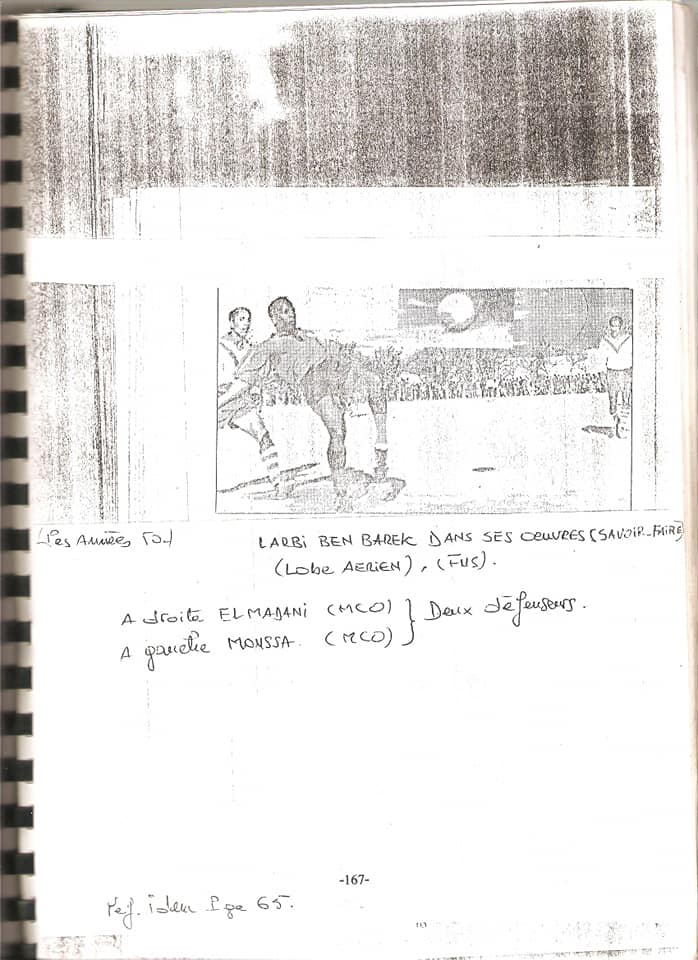 (Les Années 50)
LARBI BEN BAREK DANS SES OEUVRES (SAVOIR-FAIRE)
(LOBE AERIEN), (FUS).
A droite ELMADANI (MCO) } Deux défenseurs.
A gauche MOUSSA. (MCO)
-167-
Ref. idem Pge 65.